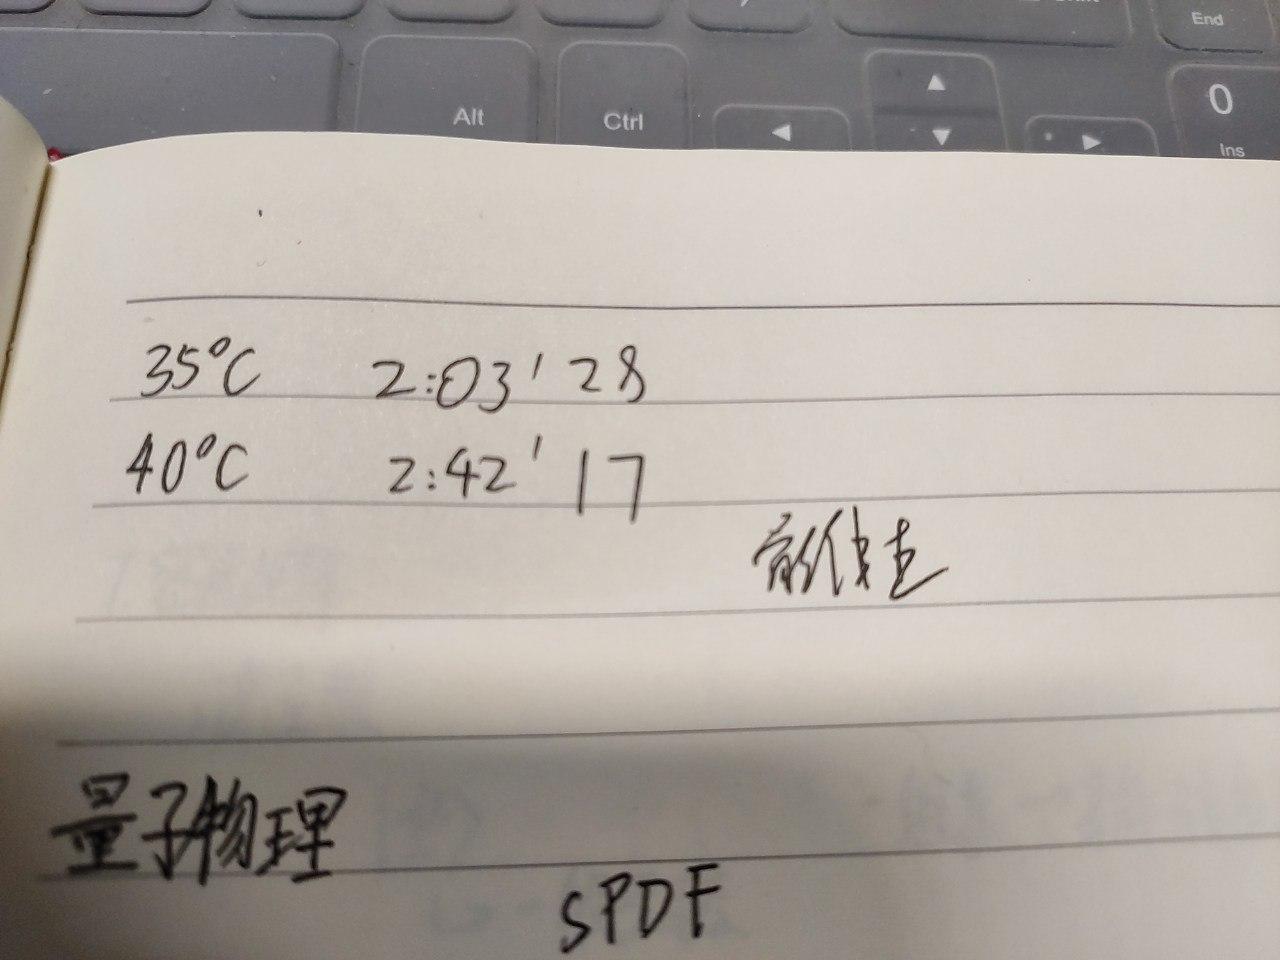 End
Alt
Ctrl
0
Ins
35°C 2:03' 28
40°C 2:42' 17
量子物理
SPDF